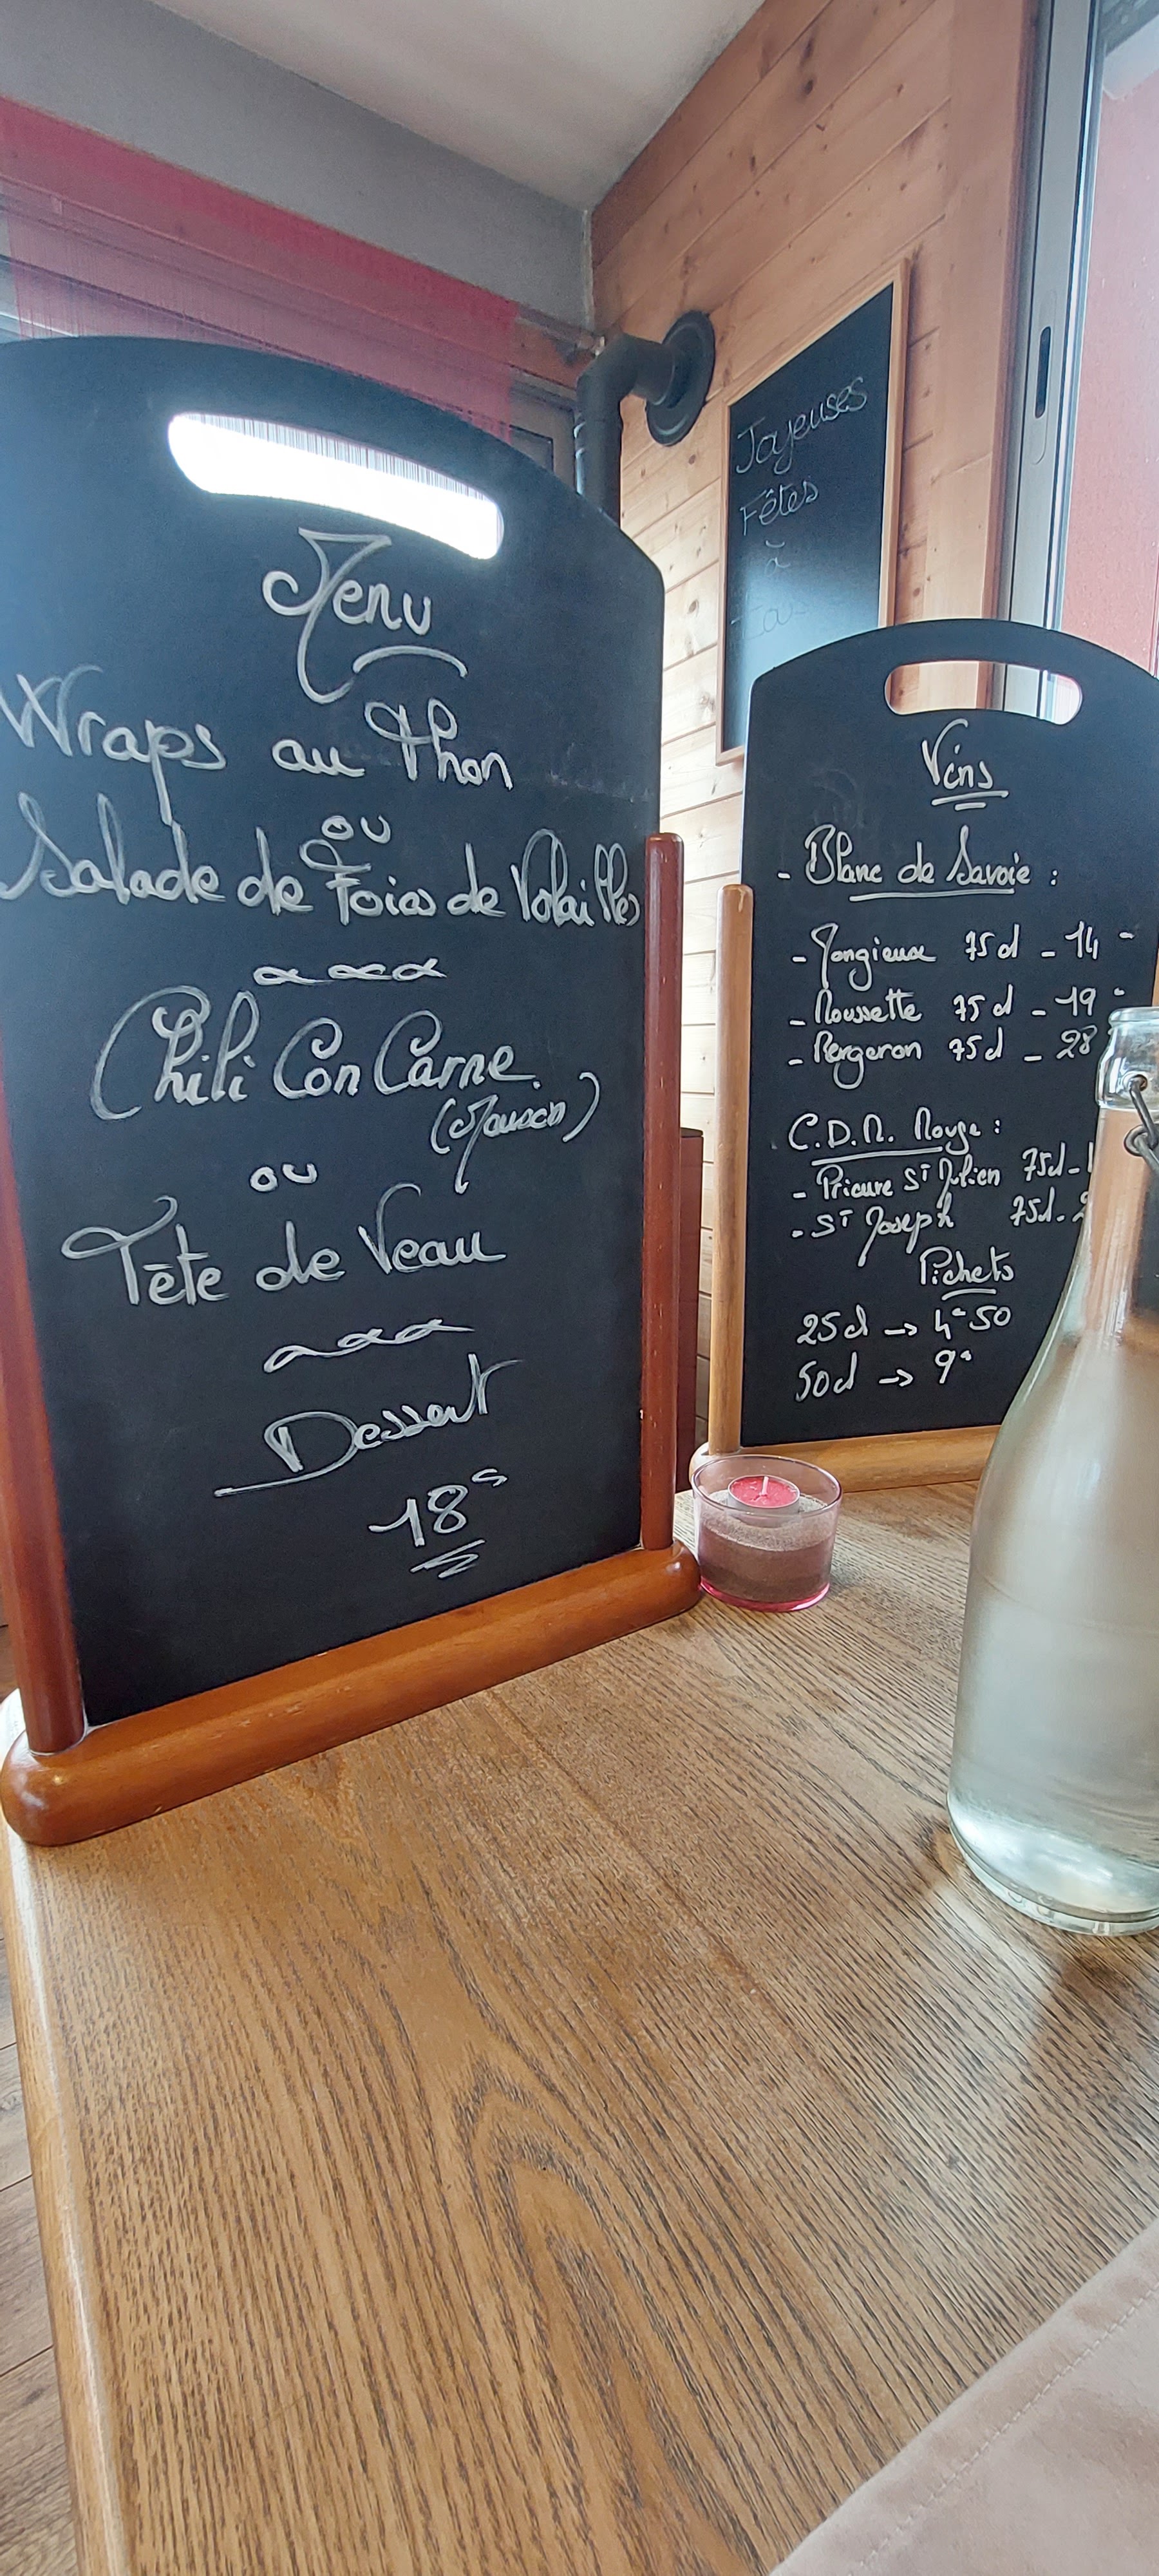 Menu
Wraps au Thon
ou
Salade de Foies de Volailles
Chili Con Carne
(Maison)
ou
Tête de Veau
Dessert
18€
Joyeuses
Fêtes
à
Tous
Vins
- Blanc de Savoie :
- Jongieux 75cl - 14€
- Roussette 75cl - 19€
- Bergeron 75cl - 28
C.D.R. Rouge :
- Prieuré St Julien 75cl - 1
- St Joseph 75cl - 2
Pichets
25cl → 4€50
50cl → 9€